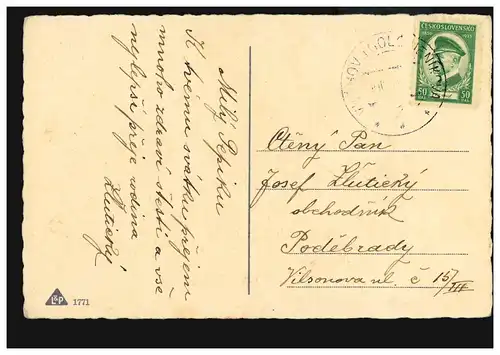 Milý Pepíku
K tvému svátku přejeme
mnoho zdraví štěstí a vše
nejlepší přeje rodina
Žlutický
L&P 1771
ČESKOSLOVENSKO
1850 1935
50 50
Ctěný Pan
Josef Žlutický
obchodník
Poděbrady
Vilsonova ul. č 15/III